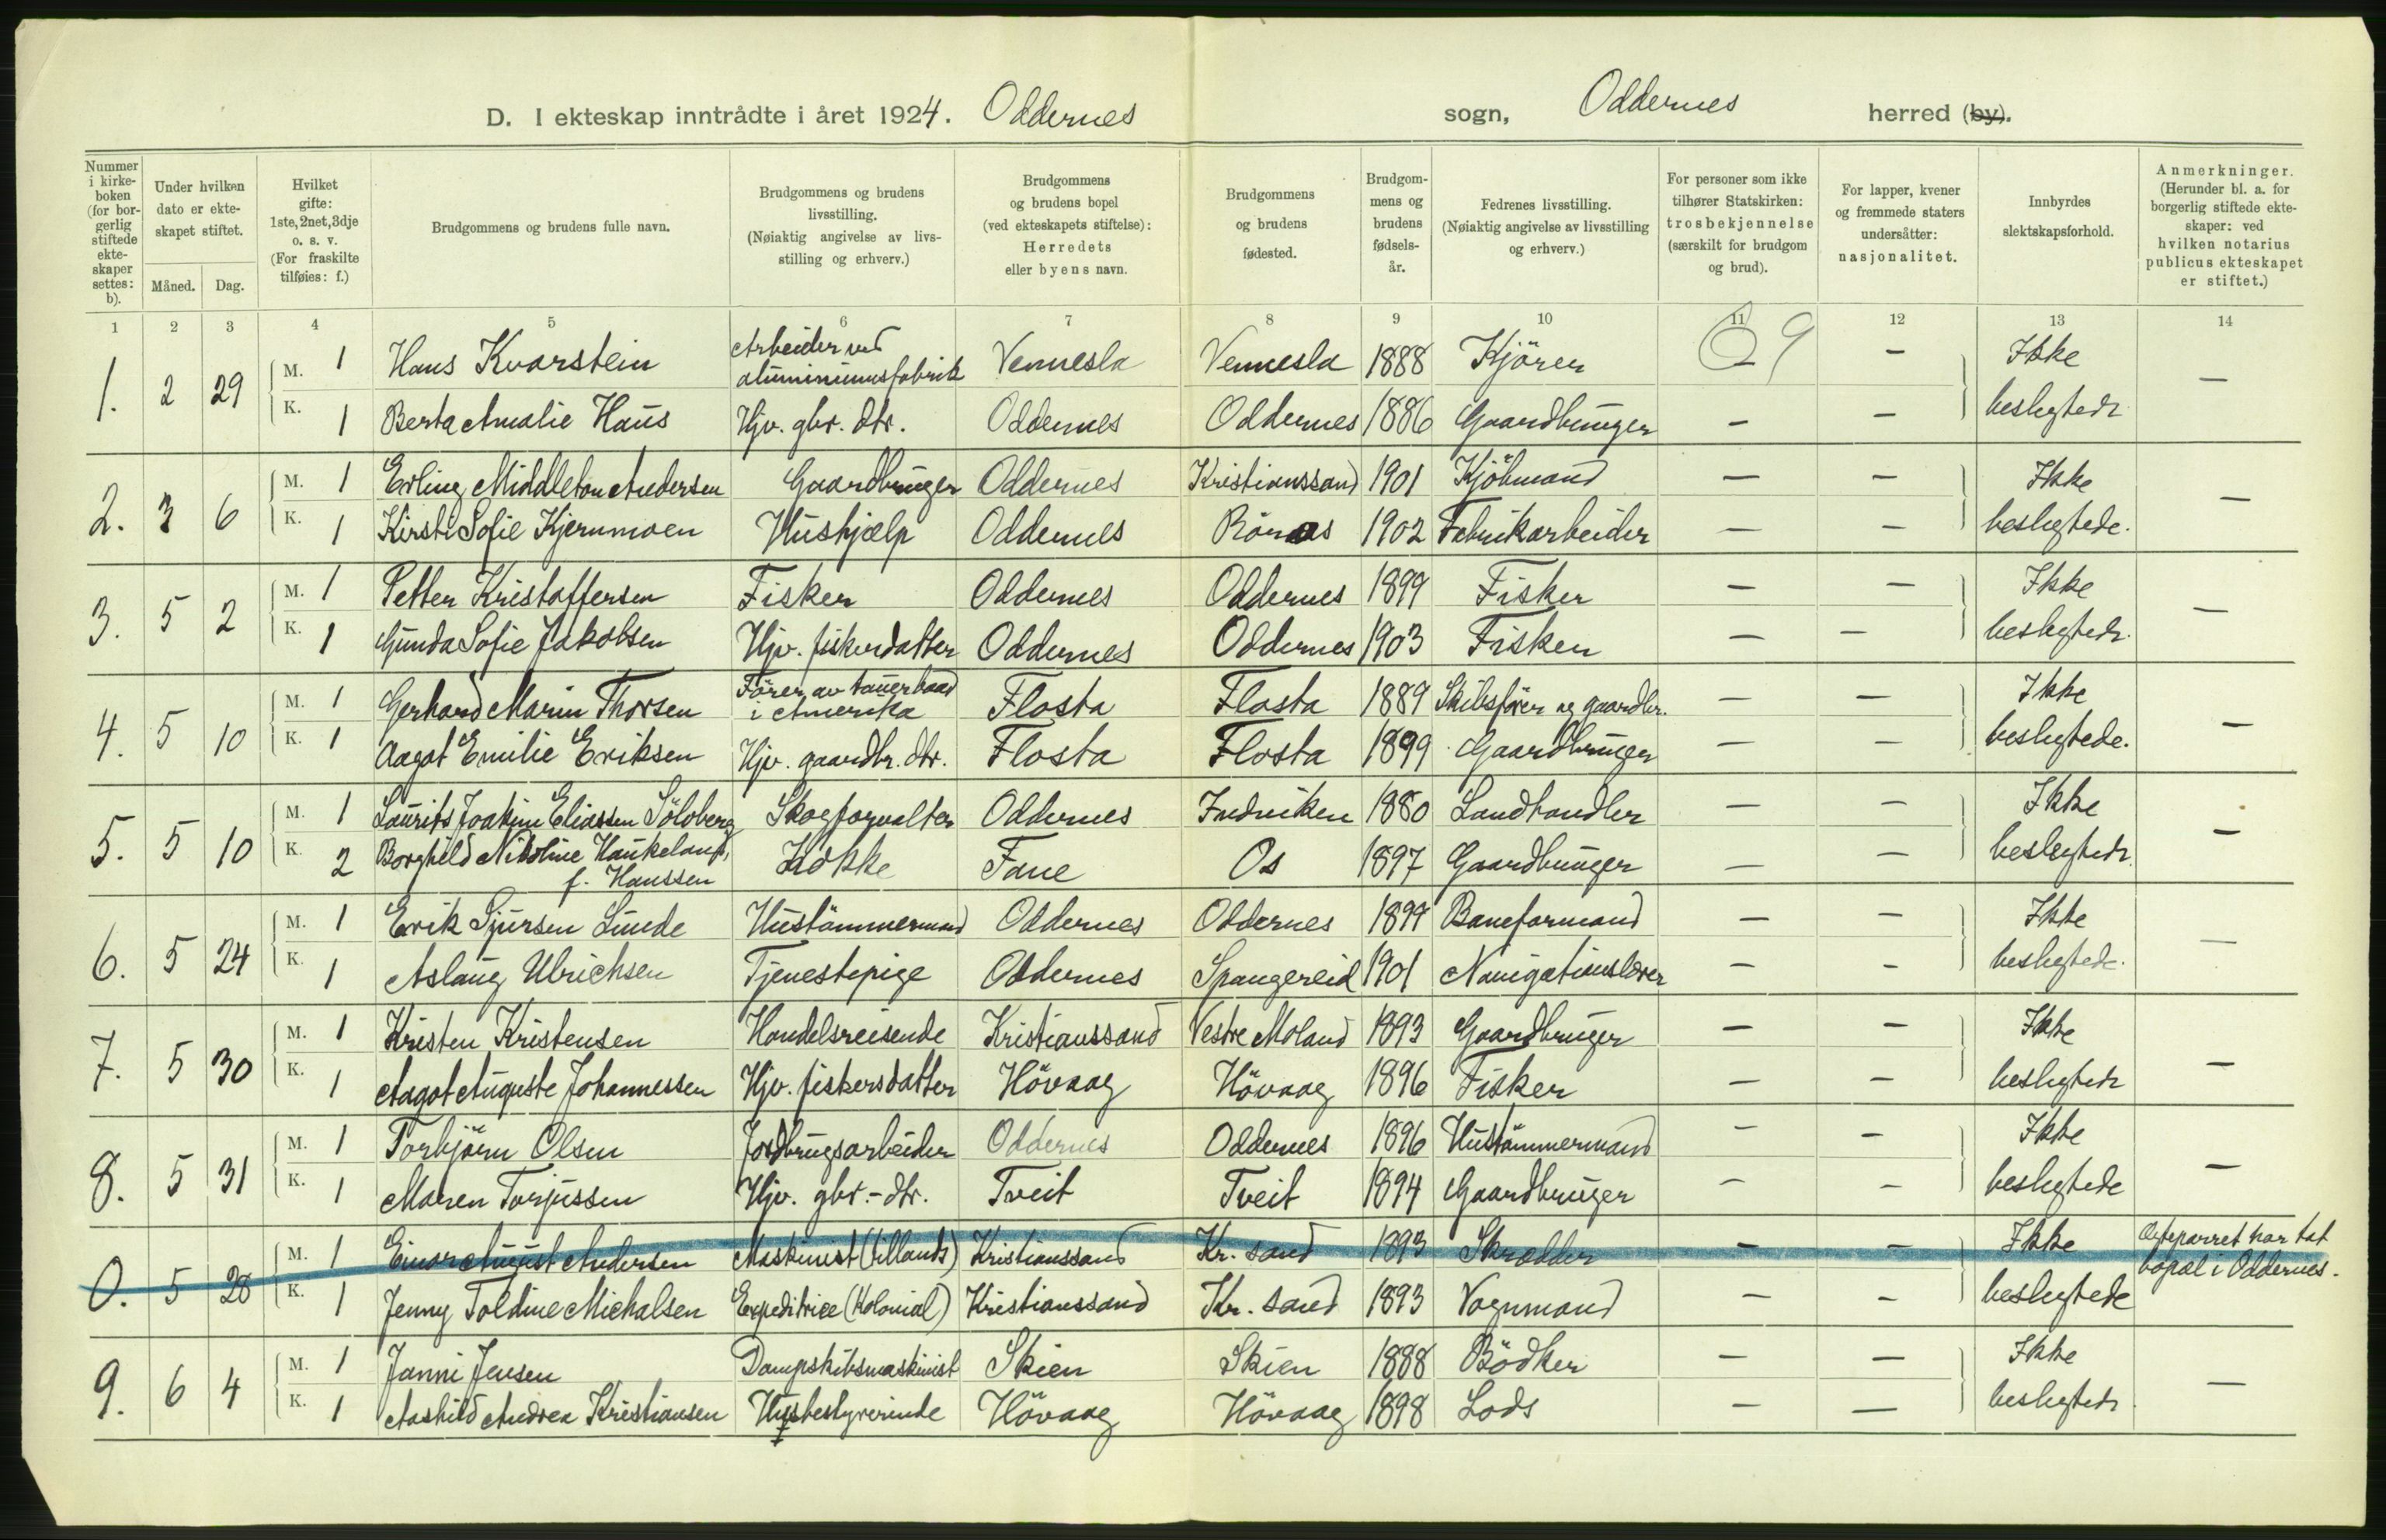 D. I ekteskap inntrådte i året 1924. Oddernes sogn, Oddernes herred (by).
Nummer i kirkeboken (for borgerlig stiftede ekteskaper settes: b).
Under hvilken dato er ekteskapet stiftet.
Måned. Dag.
Hvilket gifte: 1ste, 2net, 3dje o. s. v. (For fraskilte tilføies: f.)
Brudgommens og brudens fulle navn.
Brudgommens og brudens livsstilling. (Nøiaktig angivelse av livsstilling og erhverv.)
Brudgommens og brudens bopel (ved ekteskapets stiftelse): Herredets eller byens navn.
Brudgommens og brudens fødested.
Brudgommens og brudens fødselsår.
Fedrenes livsstilling. (Nøiaktig angivelse av livsstilling og erhverv.)
For personer som ikke tilhører Statskirken: trosbekjennelse (særskilt for brudgom og brud).
For lapper, kvener og fremmede staters undersåtter: nasjonalitet.
Innbyrdes slektskapsforhold.
Anmerkninger. (Herunder bl. a. for borgerlig stiftede ekteskaper: ved hvilken notarius publicus ekteskapet er stiftet.)
1 2 3 4 5 6 7 8 9 10 11 12 13 14
1. 2 29 M. 1 Hans Kvarstein Arbeider ved aluminiumsfabrik Vennesla Vennesla 1888 Kjörer 9 – Ikke –
K. 1 Berta Amalie Haus Hjv. gbr. dtr. Oddernes Oddernes 1886 Gaardbruger – – beslegtede
2. 3 6 M. 1 Erling Middleton Andersen Gaardbruger Oddernes Kristianssand 1901 Kjöbmand – – Ikke –
K. 1 Kirsti Sofie Kjernmoen Hushjælp Oddernes Rönaas 1902 Fabrikarbeider – – beslegtede.
3. 5 2 M. 1 Petter Kristoffersen Fisker Oddernes Oddernes 1899 Fisker – – Ikke –
K. 1 Gunda Sofie Jakobsen Hjv. fiskerdatter Oddernes Oddernes 1903 Fisker – – beslegtede.
4. 5 10 M. 1 Gerhard Marin Thorsen Förer av tauerbaad i Amerika Flosta Flosta 1889 Skibsförer og gaardbr. – – Ikke –
K. 1 Aagot Emilie Eriksen Hjv. gaardbr. dtr. Flosta Flosta 1899 Gaardbruger – – beslegtede.
5. 5 10 M. 1 Laurits Joakim Eliassen Söloberg Skogforvalter Oddernes Indviken 1880 Landhandler – – Ikke –
K. 2 Borghild Nikoline Haukeland, f. Hanssen Kokke Fane Os 1897 Gaardbruger – – beslegtede.
6. 5 24 M. 1 Erik Sjursen Lunde Hustömmermand Oddernes Oddernes 1899 Baneformand – – Ikke –
K. 1 Aslaug Ulrichsen Tjenestepige Oddernes Spangereid 1901 Navigationslærer – – beslegtede.
7. 5 30 M. 1 Kristen Kristensen Handelsreisende Kristianssand Vestre Moland 1893 Gaardbruger – – Ikke –
K. 1 Aagot Auguste Johannessen Hjv. fiskersdatter Hövaag Hövaag 1896 Fisker – – beslegtede
8. 5 31 M. 1 Torbjörn Olsen Jordbrugsarbeider Oddernes Oddernes 1896 Hustömmermand – – Ikke –
K. 1 Maren Torjussen Hjv. gbr.-dtr. Tveit Tveit 1894 Gaardbruger – – beslegtede
0. 5 28 M. 1 Einar August Andersen Maskinist (tillands) Kristianssand Kr. sand 1893 Skrædder – – Ikke Ægteparret har tat bopæl i Oddernes.
K. 1 Jenny Toldine Michalsen Expeditrice (Kolonial) Kristianssand Kr. sand 1893 Vognmand – – beslegtede
9. 6 4 M. 1 Janni Jensen Dampskibsmaskinist Skien Skien 1888 Bödker – – Ikke –
K. 1 Aashild Andrea Kristiansen Husbestyrerinde Hövaag Hövaag 1898 Lods – – beslegtede